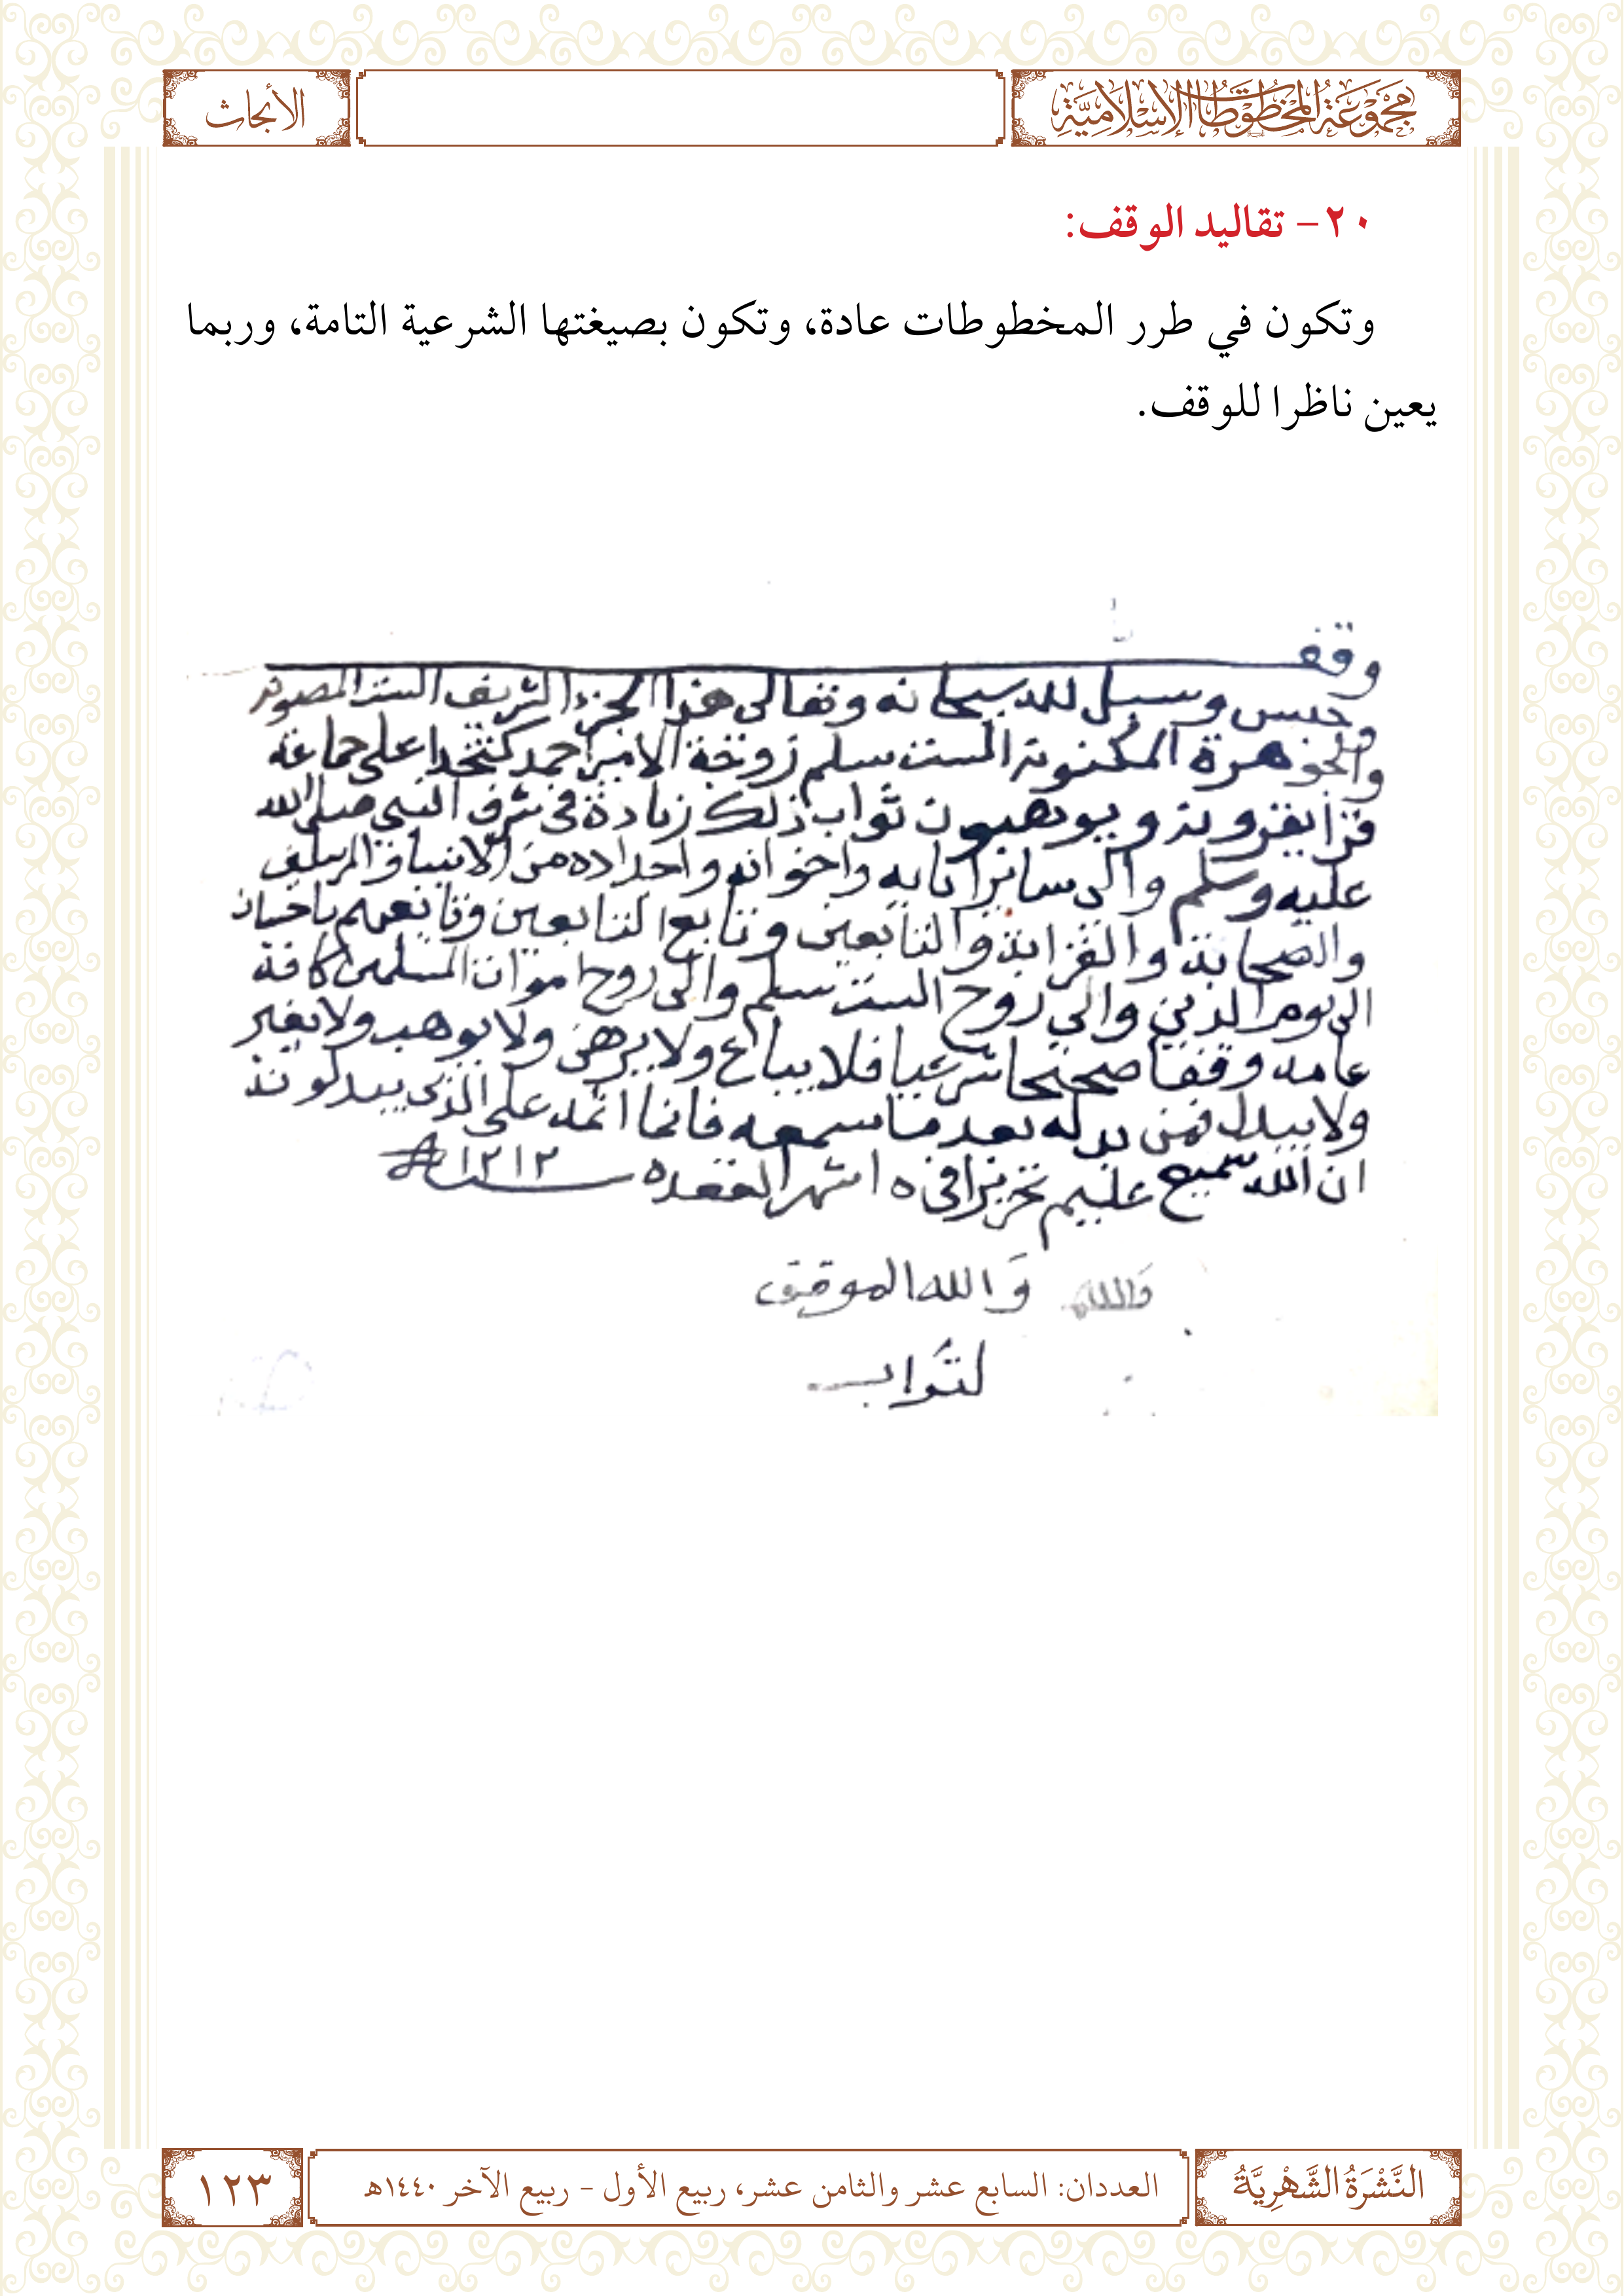 مجموعة المخطوطات الإسلامية
الأبحاث
٢٠- تقاليد الوقف:
وتكون في طرر المخطوطات عادة، وتكون بصيغتها الشرعية التامة، وربما
يعين ناظرا للوقف.
وقف
وحبس وسبل لله سبحانه وتعالى هذا الجزء الشريف الست المصونه
والجوهرة المكنونة الست سلم زوجة الامير احمد كتخدا على جماعة
قرا يقرونه ويوهبون ثواب ذلك زيادة في شرف النبي صلى الله
عليه وسلم والى ساير ابايه واخوانه واجداده من الانبيا والمرسلين
والصحابة والقرابة والتابعين وتابع التابعين وتابعهم باحسان
الى يوم الدين والي روح الست سلم والى روح اموات المسلمين كافة
عامه وقفا صحيحا شرعيا فلا يباع ولا يرهن ولا يوهب ولا يغير
ولا يبدل فمن بدله بعد ما سمعه فانما اثمه على الذي يبدلونه
ان الله سميع عليم تحريرا في ٥ اشهر القعده سنة ١٢١٢
والله والله الموفق
لثواب
النَّشْرَةُ الشَّهْرِيَّةُ
العددان: السابع عشر والثامن عشر، ربيع الأول - ربيع الآخر ١٤٤٠هـ
١٢٣